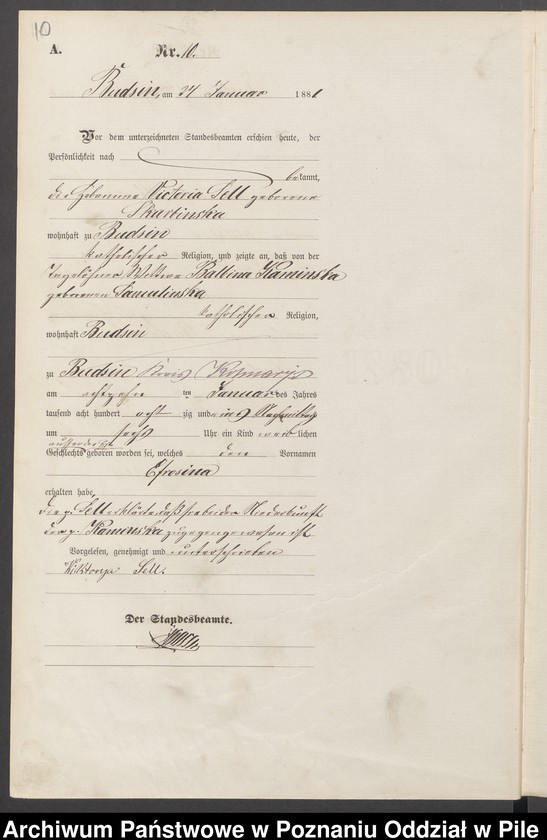 10
A. Nr. 10.
Budsin, am 24 Januar 1881
Vor dem unterzeichneten Standesbeamten erschien heute, der
Persönlichkeit nach
bekannt,
die Hebamme Victoria Sell geborene
Skartinska
wohnhaft zu Budsin
katholischer Religion, und zeigte an, daß von der
Tagelöhner Wittwe Balbina Kaminska
geborenen Samulinska
katholischer Religion,
wohnhaft Budsin
zu Budsin Kreis
am achtzehn ten Januar des Jahres
tausend acht hundert acht zig und eins Nachmittags
um sechs Uhr ein Kind weib lichen
außerehelich
Geschlechts geboren worden sei, welches den Vornamen
Efrosina
erhalten habe
die p. Sell erklärte, daß sie bei der Niederkunft
der p. Kaminska zugegen gewesen ist
Vorgelesen, genehmigt und unterschrieben
Wiktorya Sell.
Der Standesbeamte.
Archiwum Państwowe w Poznaniu Oddział w Pile